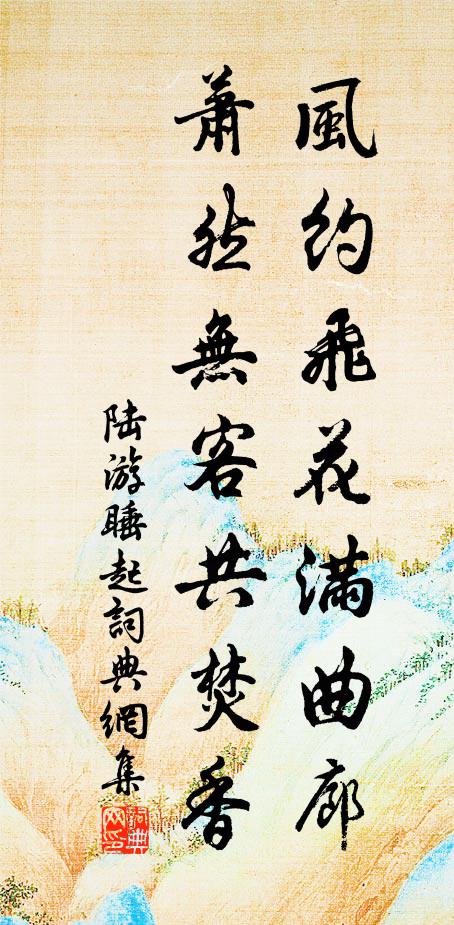 風約飛花滿曲廊
蕭然無客共焚香
陸游睡起詞典網集
詞典網印